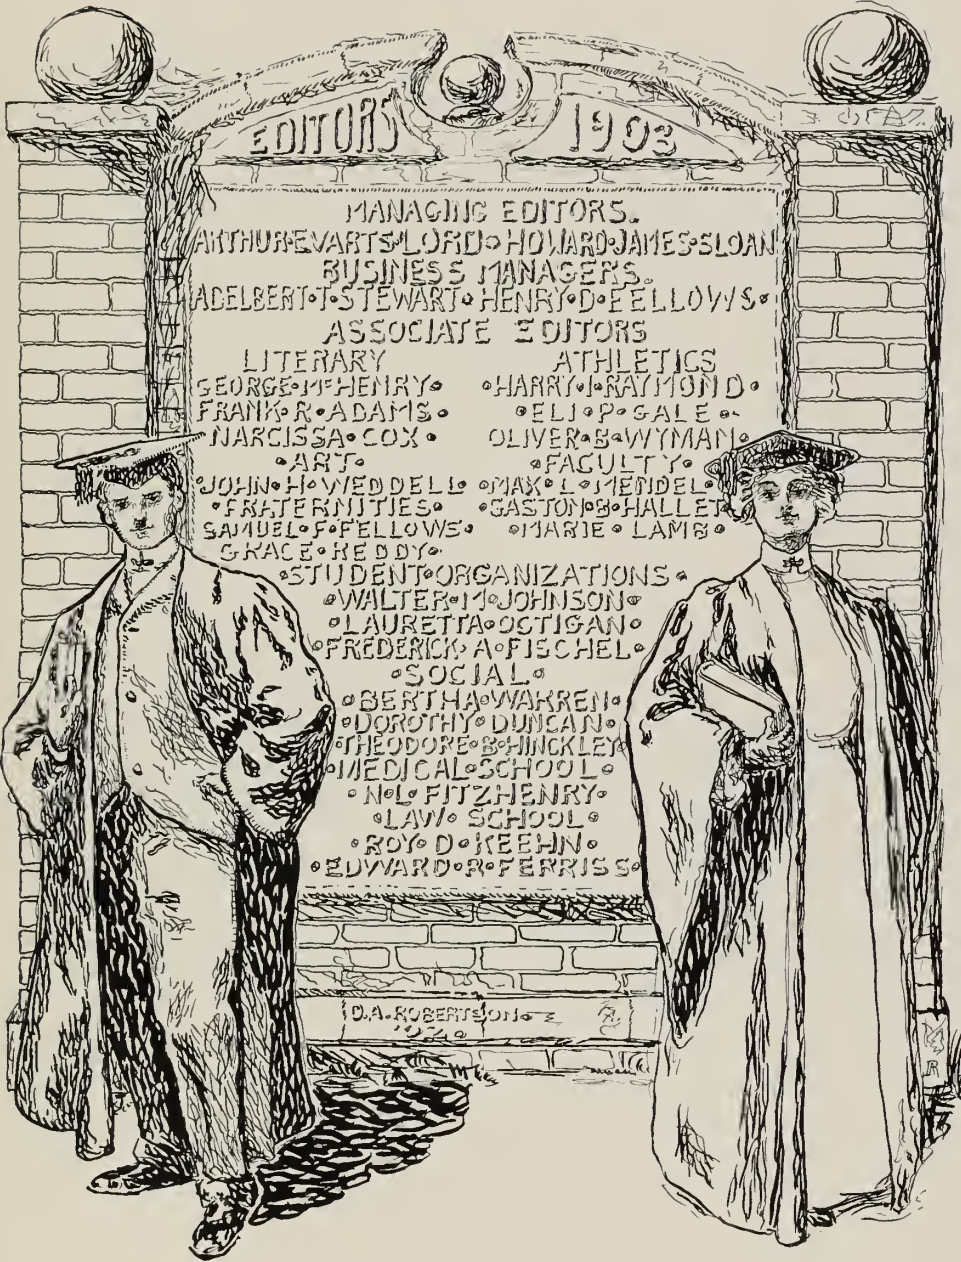 EDITORS 1903
MANAGING EDITORS.
ARTHUR•EVARTS•LORD•HOWARD•JAMES•SLOAN
BUSINESS MANAGERS.
ADELBERT•T•STEWART•HENRY•D•FELLOWS•
ASSOCIATE EDITORS
LITERARY
GEORGE•McHENRY•
FRANK•R•ADAMS•
NARCISSA•COX•
•ART•
•JOHN•H•WEDDELL•
•FRATERNITIES•
SAMUEL•F•FELLOWS•
GRACE•REDDY•
ATHLETICS
•HARRY•I•RAYMOND•
•ELI•P•GALE•
OLIVER•B•WYMAN•
•FACULTY•
•MAX•L•MENDEL•
•GASTON•B•HALLET
•MARIE•LAMB•
•STUDENT•ORGANIZATIONS•
•WALTER•M•JOHNSON•
•LAURETTA•OCTIGAN•
•FREDERICK•A•FISCHEL•
•SOCIAL•
•BERTHA•WARREN•
•DOROTHY•DUNCAN•
•THEODORE•B•HINCKLEY•
•MEDICAL•SCHOOL•
•N•L•FITZHENRY•
•LAW•SCHOOL•
•ROY•D•KEEHN•
•EDWARD•R•FERRISS•
D.A.ROBERTSON
'02